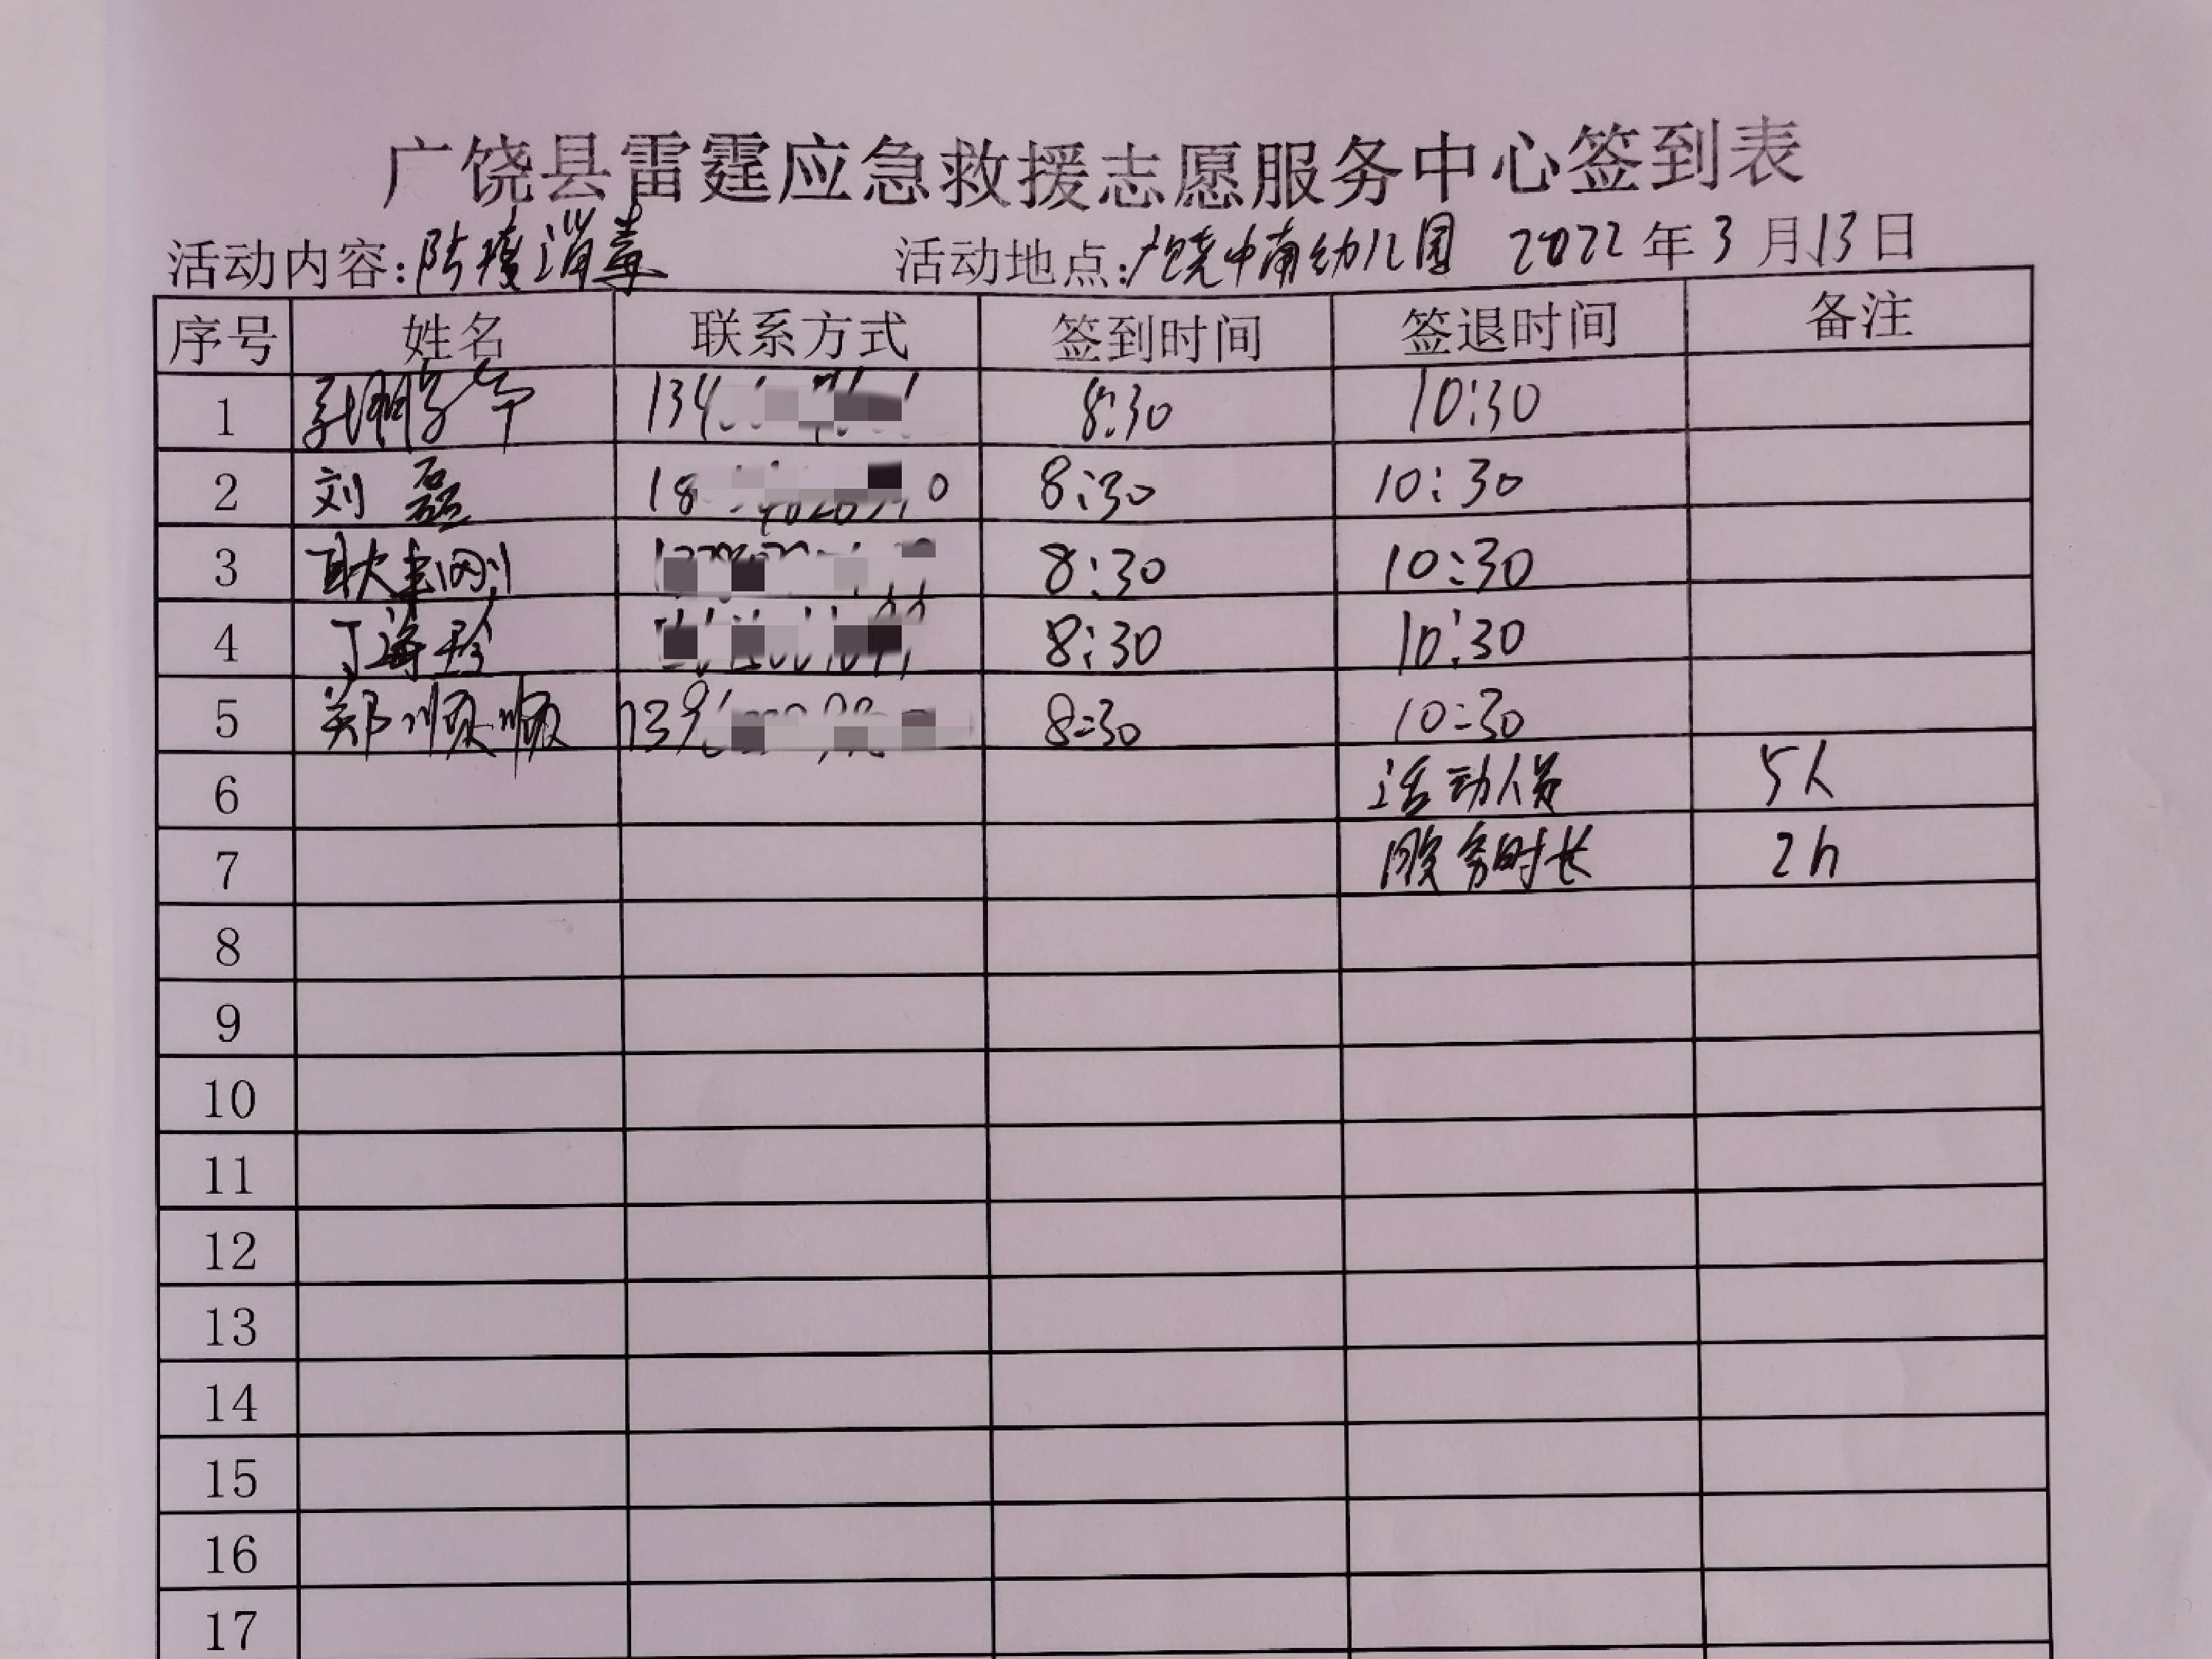 广饶县雷霆应急救援志愿服务中心签到表
活动内容:防疫消毒 活动地点:广饶中南幼儿园 2022年3月13日
序号 姓名 联系方式 签到时间 签退时间 备注
1 134 8:30 10:30
2 刘磊 18 0 8:30 10:30
3 耿志刚 8:30 10:30
4 丁海珍 8:30 10:30
5 郑顺顺 139 8:30 10:30
6 活动人员 5人
7 服务时长 2h
8
9
10
11
12
13
14
15
16
17